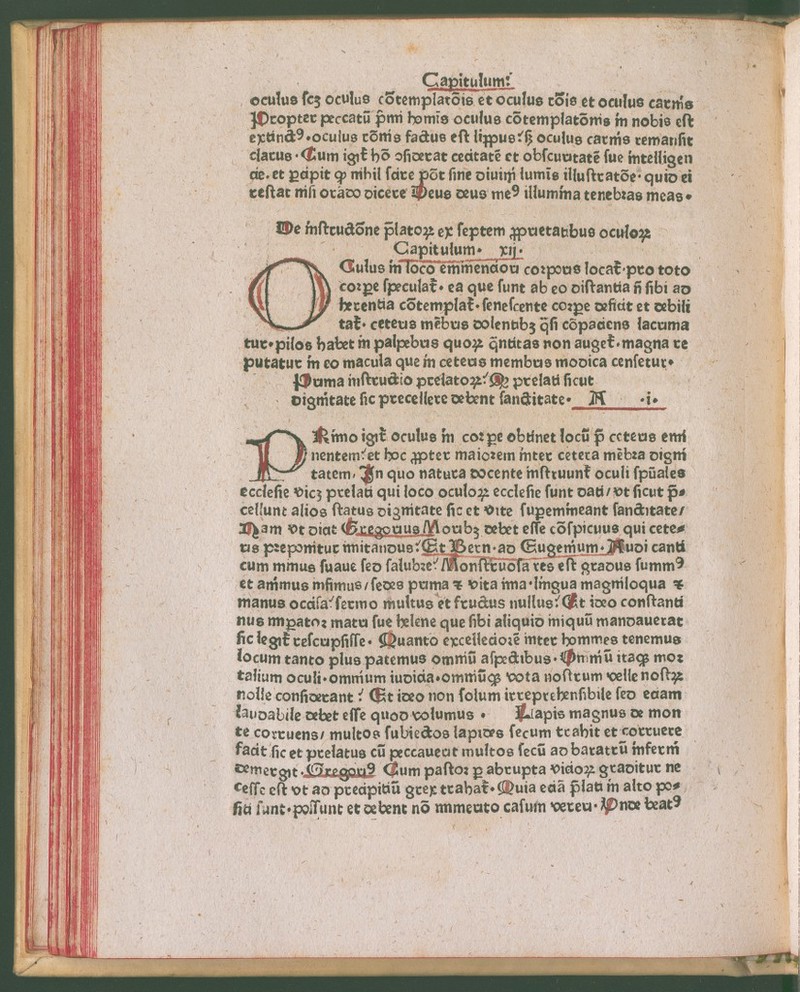 Capitulum:
oculus scꝫ oculus cōtemplatōis et oculus rōis et oculus carnis
Propter peccatū p̄mi homīs oculus cōtemplatōnis in nobis est
extinctꝰ·oculus rōnis factus est lippus: sꝫ oculus carnis remansit
clarus·Cum igit̄ hō ↄsiderat cecitatē et obscuritatē sue intelligen
cie·et ꝑcipit ꝙ nihil scire pōt sine diuini lumīs illustratōe: quid ei
restat nisi orādo dicere Deus deus meꝰ illumina tenebras meas·
De instructōne p̄latoꝝ ex septem ꝓprietatibus oculoꝝ
Capitulum· xij·
OCulus in loco eminenciori corporis locat̄·pro toto
corpe speculat̄·ea que sunt ab eo distantia n̄ sibi ad
herentia cōtemplat̄·senescente corpe deficit et debili
tat̄·ceteris mēbris dolentibꝫ q̄si cōpaciens lacrima
tur·pilos habet in palpebris quoꝝ q̄ntitas non auget̄·magna re
putatur in eo macula que in ceteris membris modica censetur·
Prima instructio prelatoꝝ: Qꝫ prelati sicut
dignitate sic precellere debent sanctitate· A ·i·
PRimo igit̄ oculus in corpe obtinet locū p̄ ceteris emi
nentem: et hoc ꝓpter maiorem inter cetera mēbra digni
tatem, In quo natura docente instruunt̄ oculi spūales
ecclesie vicꝫ prelati qui loco oculoꝝ ecclesie sunt dati/vt sicut p̄⸗
cellunt alios status dignitate sic et vite supemineant sanctitate/
Nam vt dicit Gregorius Moribꝫ debet esse cōspicuus qui cete⸗
ris preponitur imitandus: Et Bern·ad Eugenium·Audi canti
cum minus suaue sed salubre: Monstruosa res est gradus summꝰ
et animus infimus/sedes prima ⁊ vita ima·lingua magniloqua ⁊
manus occisa: sermo multus et fructus nullus: Et ideo constanti
nus impator matri sue helene que sibi aliquid iniquū mandauerat
sic legit̄ rescripsisse· Quanto excellēciorē inter homines tenemus
locum tanto plus patemus omniū aspectibus·Omniū itaqꝫ mor
talium oculi·omnium iudicia·omniūqꝫ vota nostrum velle nostꝝ
nolle considerant: Et ideo non solum irreprehensibile sed eciam
laudabile debet esse quod volumus · Lapis magnus de mon
te corruens/ multos subiectos lapides secum trahit et corruere
facit sic et prelatus cū peccauerit multos secū ad baratrū inferni
demergit·Gregoriꝰ Cum pastor ꝑ abrupta vicioꝝ graditur ne
cesse est vt ad precipitiū grex trahat̄·Quia eciā p̄lati in alto po⸗
siti sunt·possunt et debent nō immerito casum vereri·Vnde beatꝰ